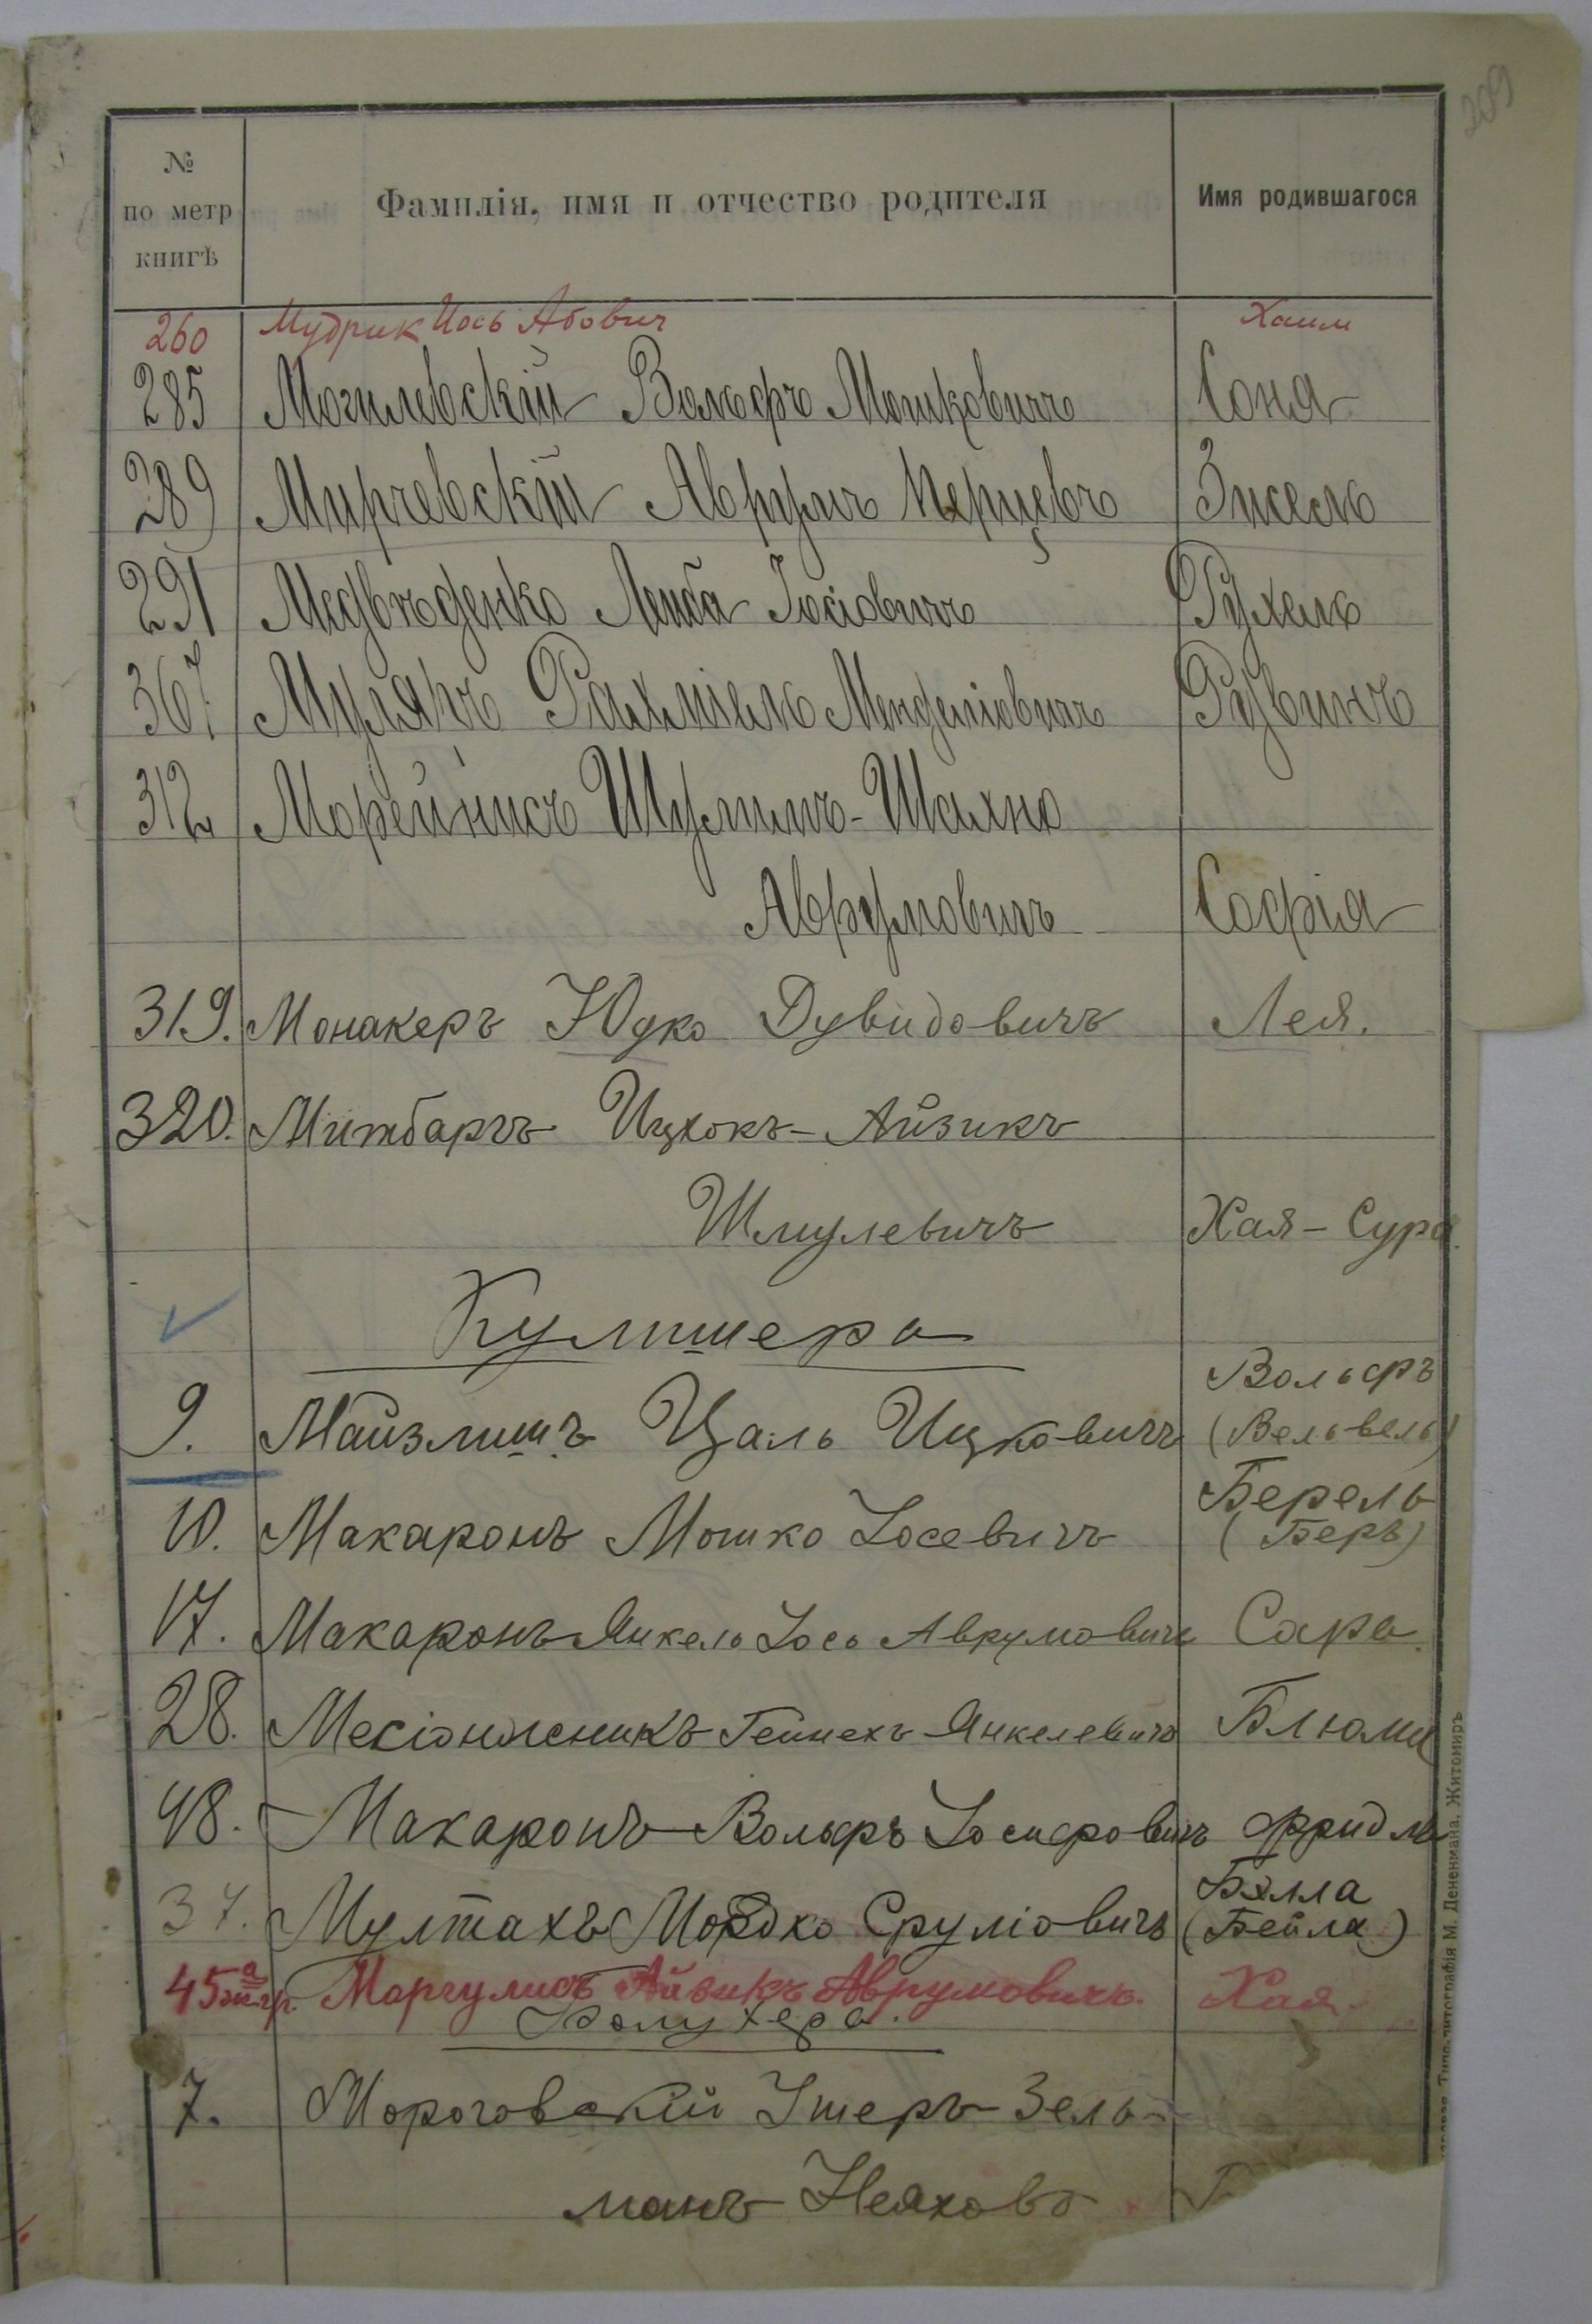 209
№
по метр
книгѣ
Фамилія, имя и отчество родителя
Имя родившагося
260 Мудрик Иось Абович Хаим
285 Могилевскій Вольфъ Мошковичъ Соня
289 Мирчевскій Аврумъ Перцевъ Зисель
291 Медвѣденко Лейба Іосіовичъ Рухель
367 Муляръ Рахміель Менделіовичъ Рувинъ
312 Морейнисъ Шулимъ-Шахно
Аврумовичъ Софія
319. Монакеръ Юдко Дувидовичъ Лея.
320. Митбаргъ Ицхокъ-Айзикъ
Шмулевичъ Хая-Сура.
Кулишера
Вольфъ
9. Майзлишъ Цаль Ицковичъ (Вельвель)
Берель
10. Макаронъ Мошко Іосевичъ (Беръ)
17. Макаронъ Янкель Іось Аврумовичъ Сара.
28. Месіонжникъ Гейнехъ Янкелевичъ Блюма
48. Макаронъ Вольфъ Іосифовичъ Фридля
Бэлла
37. Мултахъ Мордко Сруліовичъ (Бейла)
45 Маргулисъ Айзикъ Аврумовичъ. Хая.
7. Мороговскій Ушеръ Зель-
манъ
М. Дененмана, Житомиръ